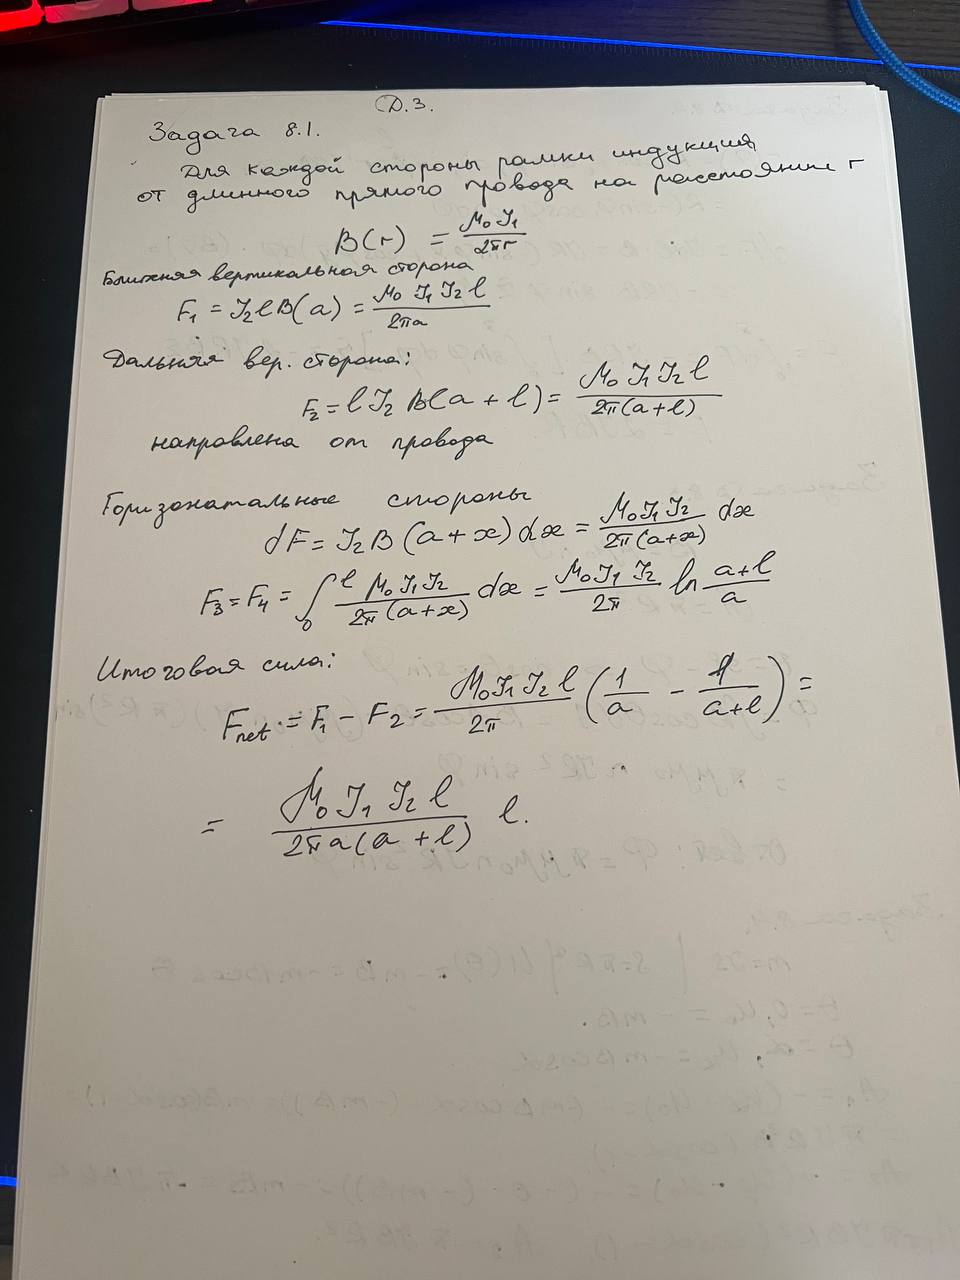 Д.З.
Задача 8.1.
Для каждой стороны рамки индукция
от длинного прямого провода на расстоянии r
B(r) = μ₀ J₁ / 2πr
Ближняя вертикальная сторона
F₁ = J₂ l B(a) = μ₀ J₁ J₂ l / 2πa
Дальняя вер. сторона:
F₂ = l J₂ B(a + l) = μ₀ J₁ J₂ l / 2π(a+l)
направлена от провода
Горизонатальные стороны
dF = J₂ B (a+x) dx = μ₀ J₁ J₂ / 2π(a+x) dx
F₃ = F₄ = ∫₀ˡ μ₀ J₁ J₂ / 2π(a+x) dx = μ₀ J₁ J₂ / 2π ln (a+l)/a
Итоговая сила:
F_net = F₁ - F₂ = μ₀ J₁ J₂ l / 2π (1/a - 1/(a+l)) =
= μ₀ J₁ J₂ l / 2πa(a + l) l.